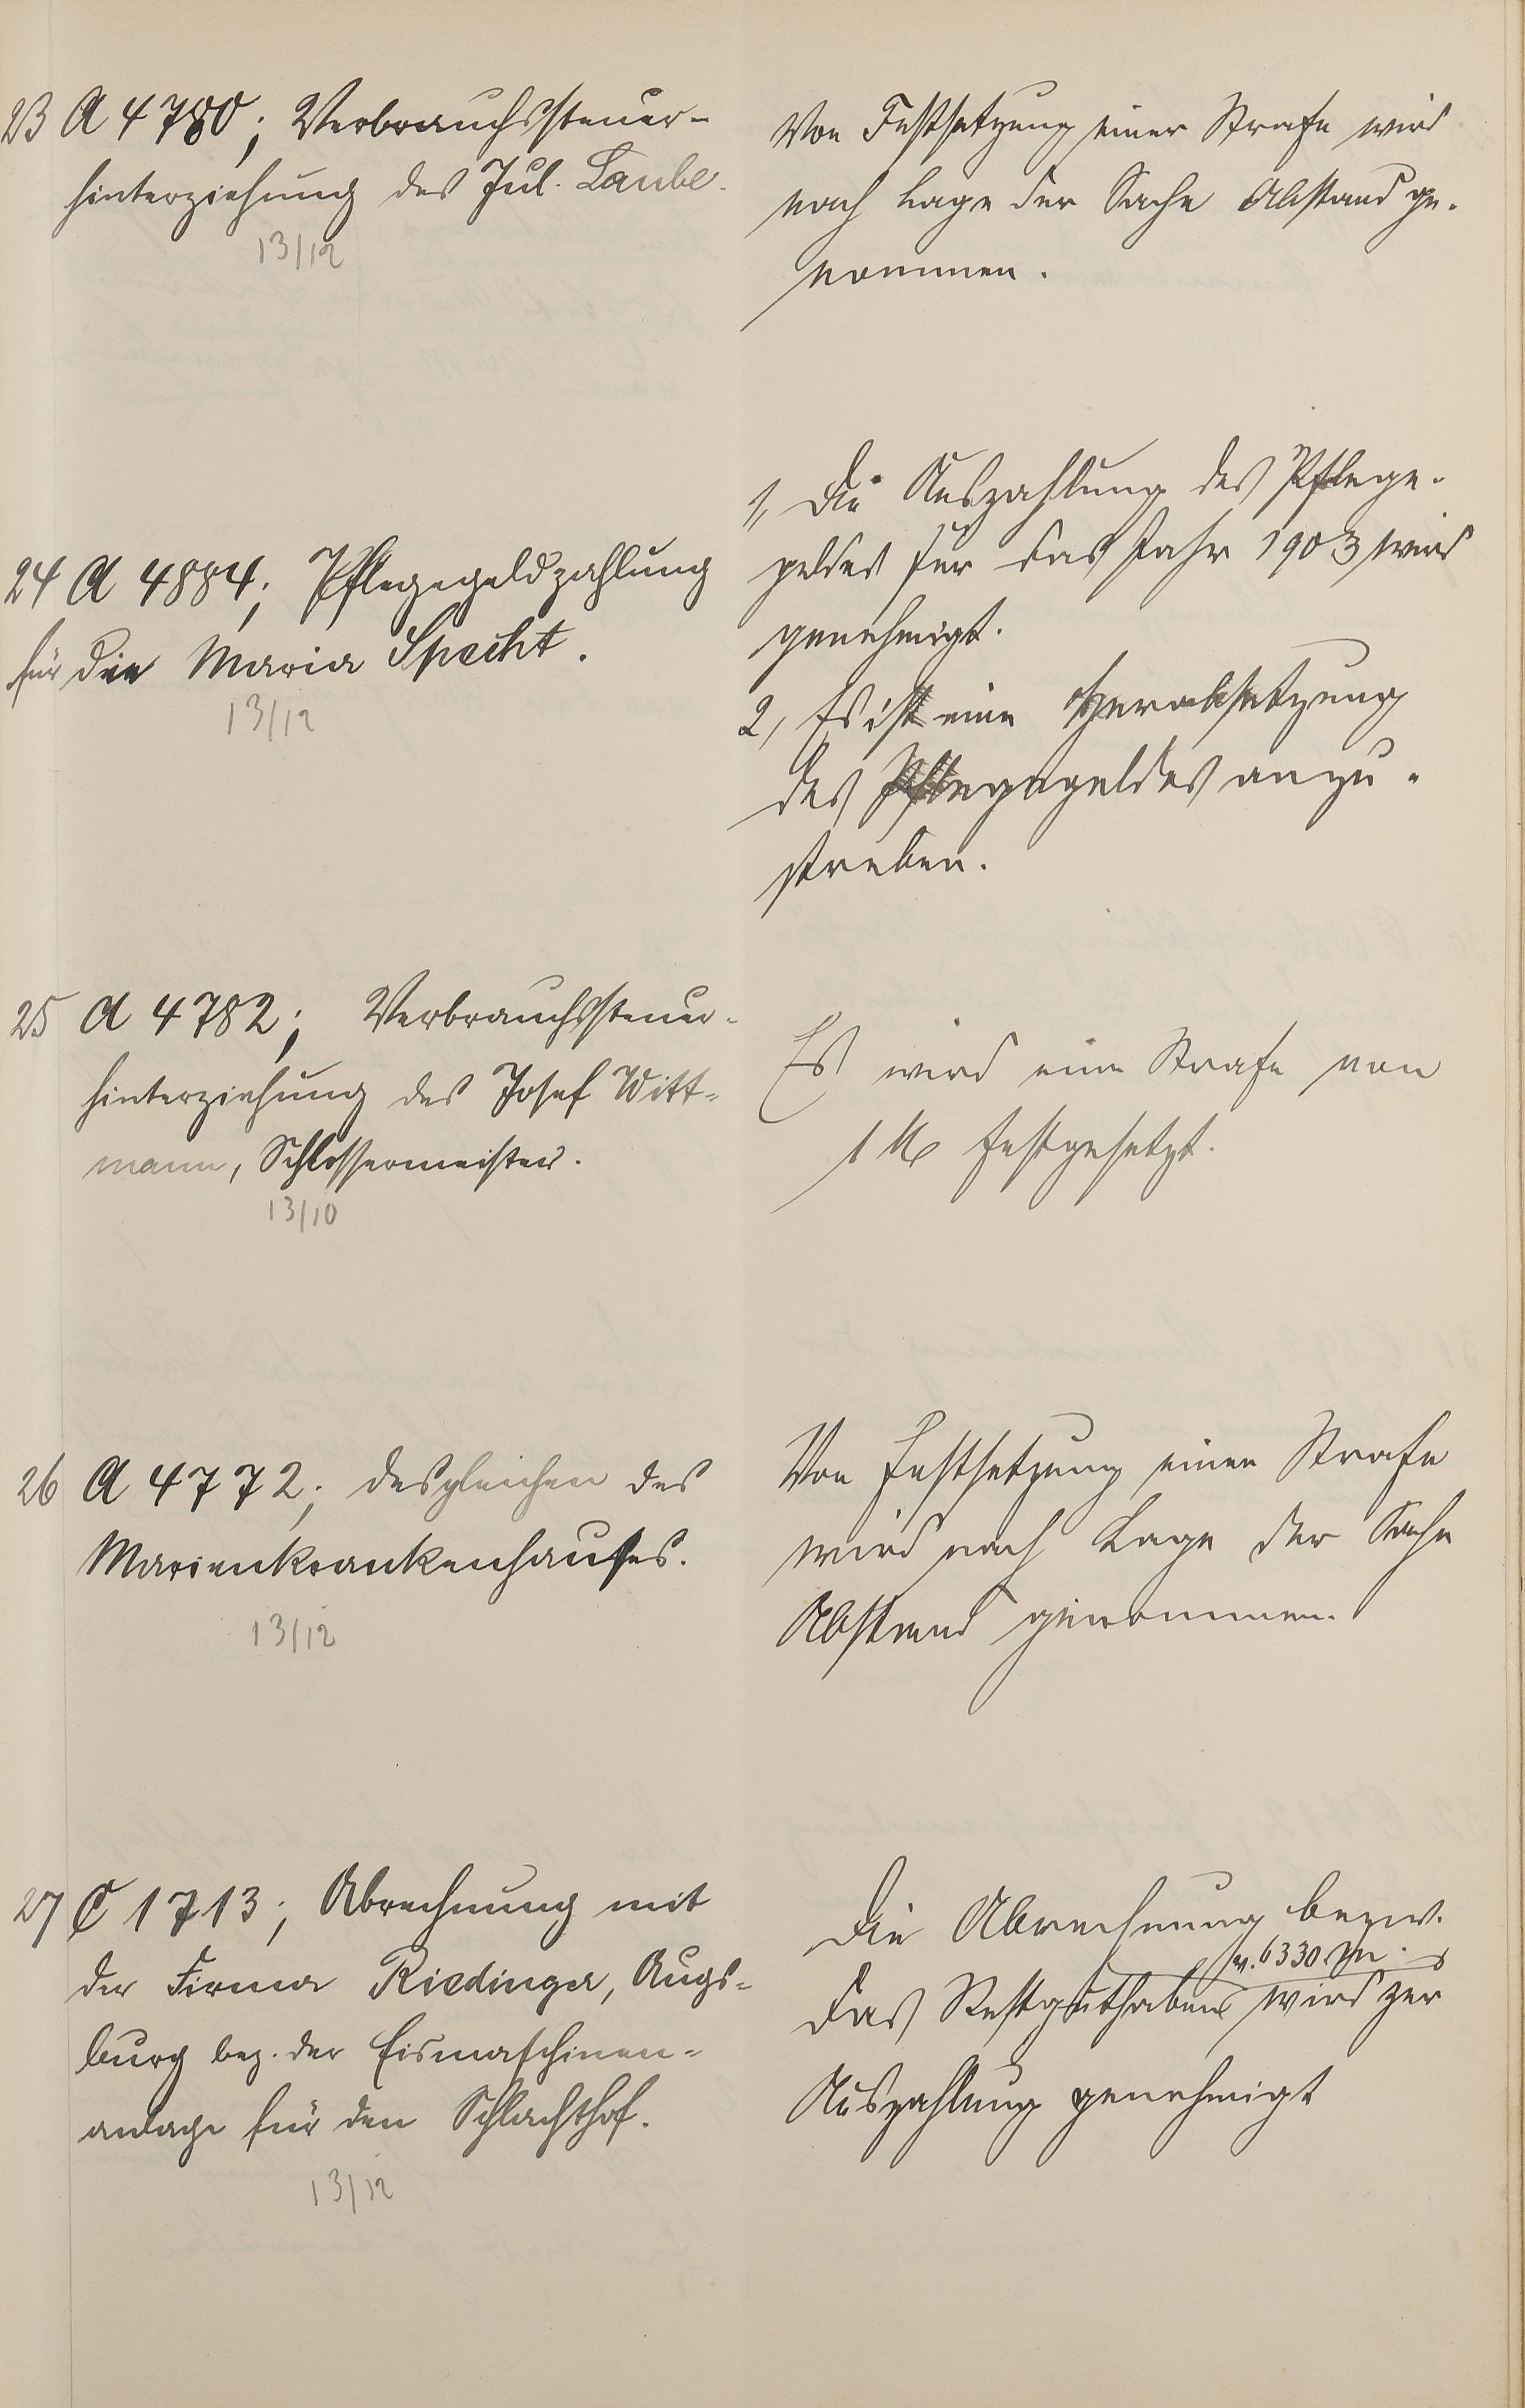 23 A 4780; Verbrauchssteuer-
hinterziehung des Jul. Laube.
13/12
Von Festsetzung einer Strafe wird
nach Lage der Sache Abstand ge-
nommen.
24 A 4884; Pflegegeldzahlung
für die Maria Specht.
13/12
1, Die Auszahlung des Pflege-
geldes für das Jahr 1903 wird
genehmigt.
2, Es ist eine Herabsetzung
des Pflegegeldes anzu-
streben.
25 A 4782; Verbrauchssteuer-
hinterziehung des Josef Witt-
mann, Schlossermeister.
13/10
Es wird eine Strafe von
1 M festgesetzt.
26 A 4772; desgleichen des
Marienkrankenhauses.
13/12
Von Festsetzung einer Strafe
wird nach Lage der Sache
Abstand genommen.
27 C 1713; Abrechnung mit
der Firma Riedinger, Augs-
burg bez. der Eismaschinen-
anlage für den Schlachthof.
13/12
Die Abrechnung bezw.
v. 6330 M
das Restguthaben wird zur
Auszahlung genehmigt